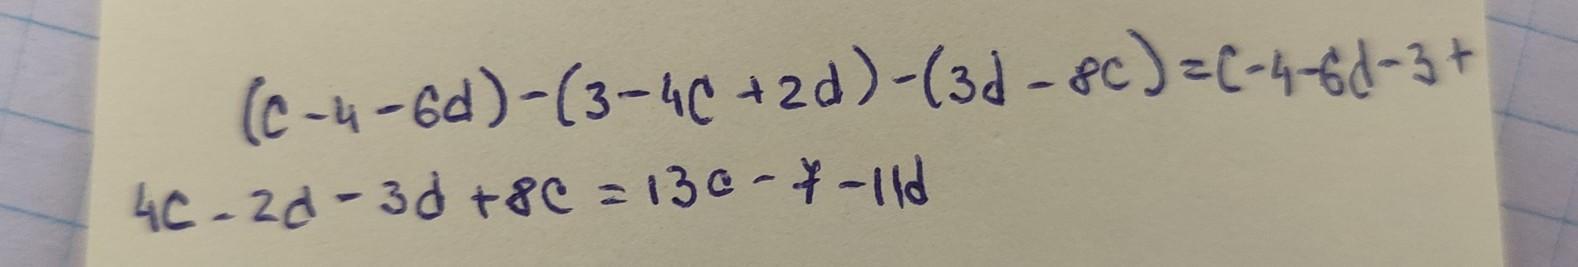 (c-4-6d)-(3-4c+2d)-(3d-8c)=c-4-6d-3+
4c-2d-3d+8c=13c-7-11d